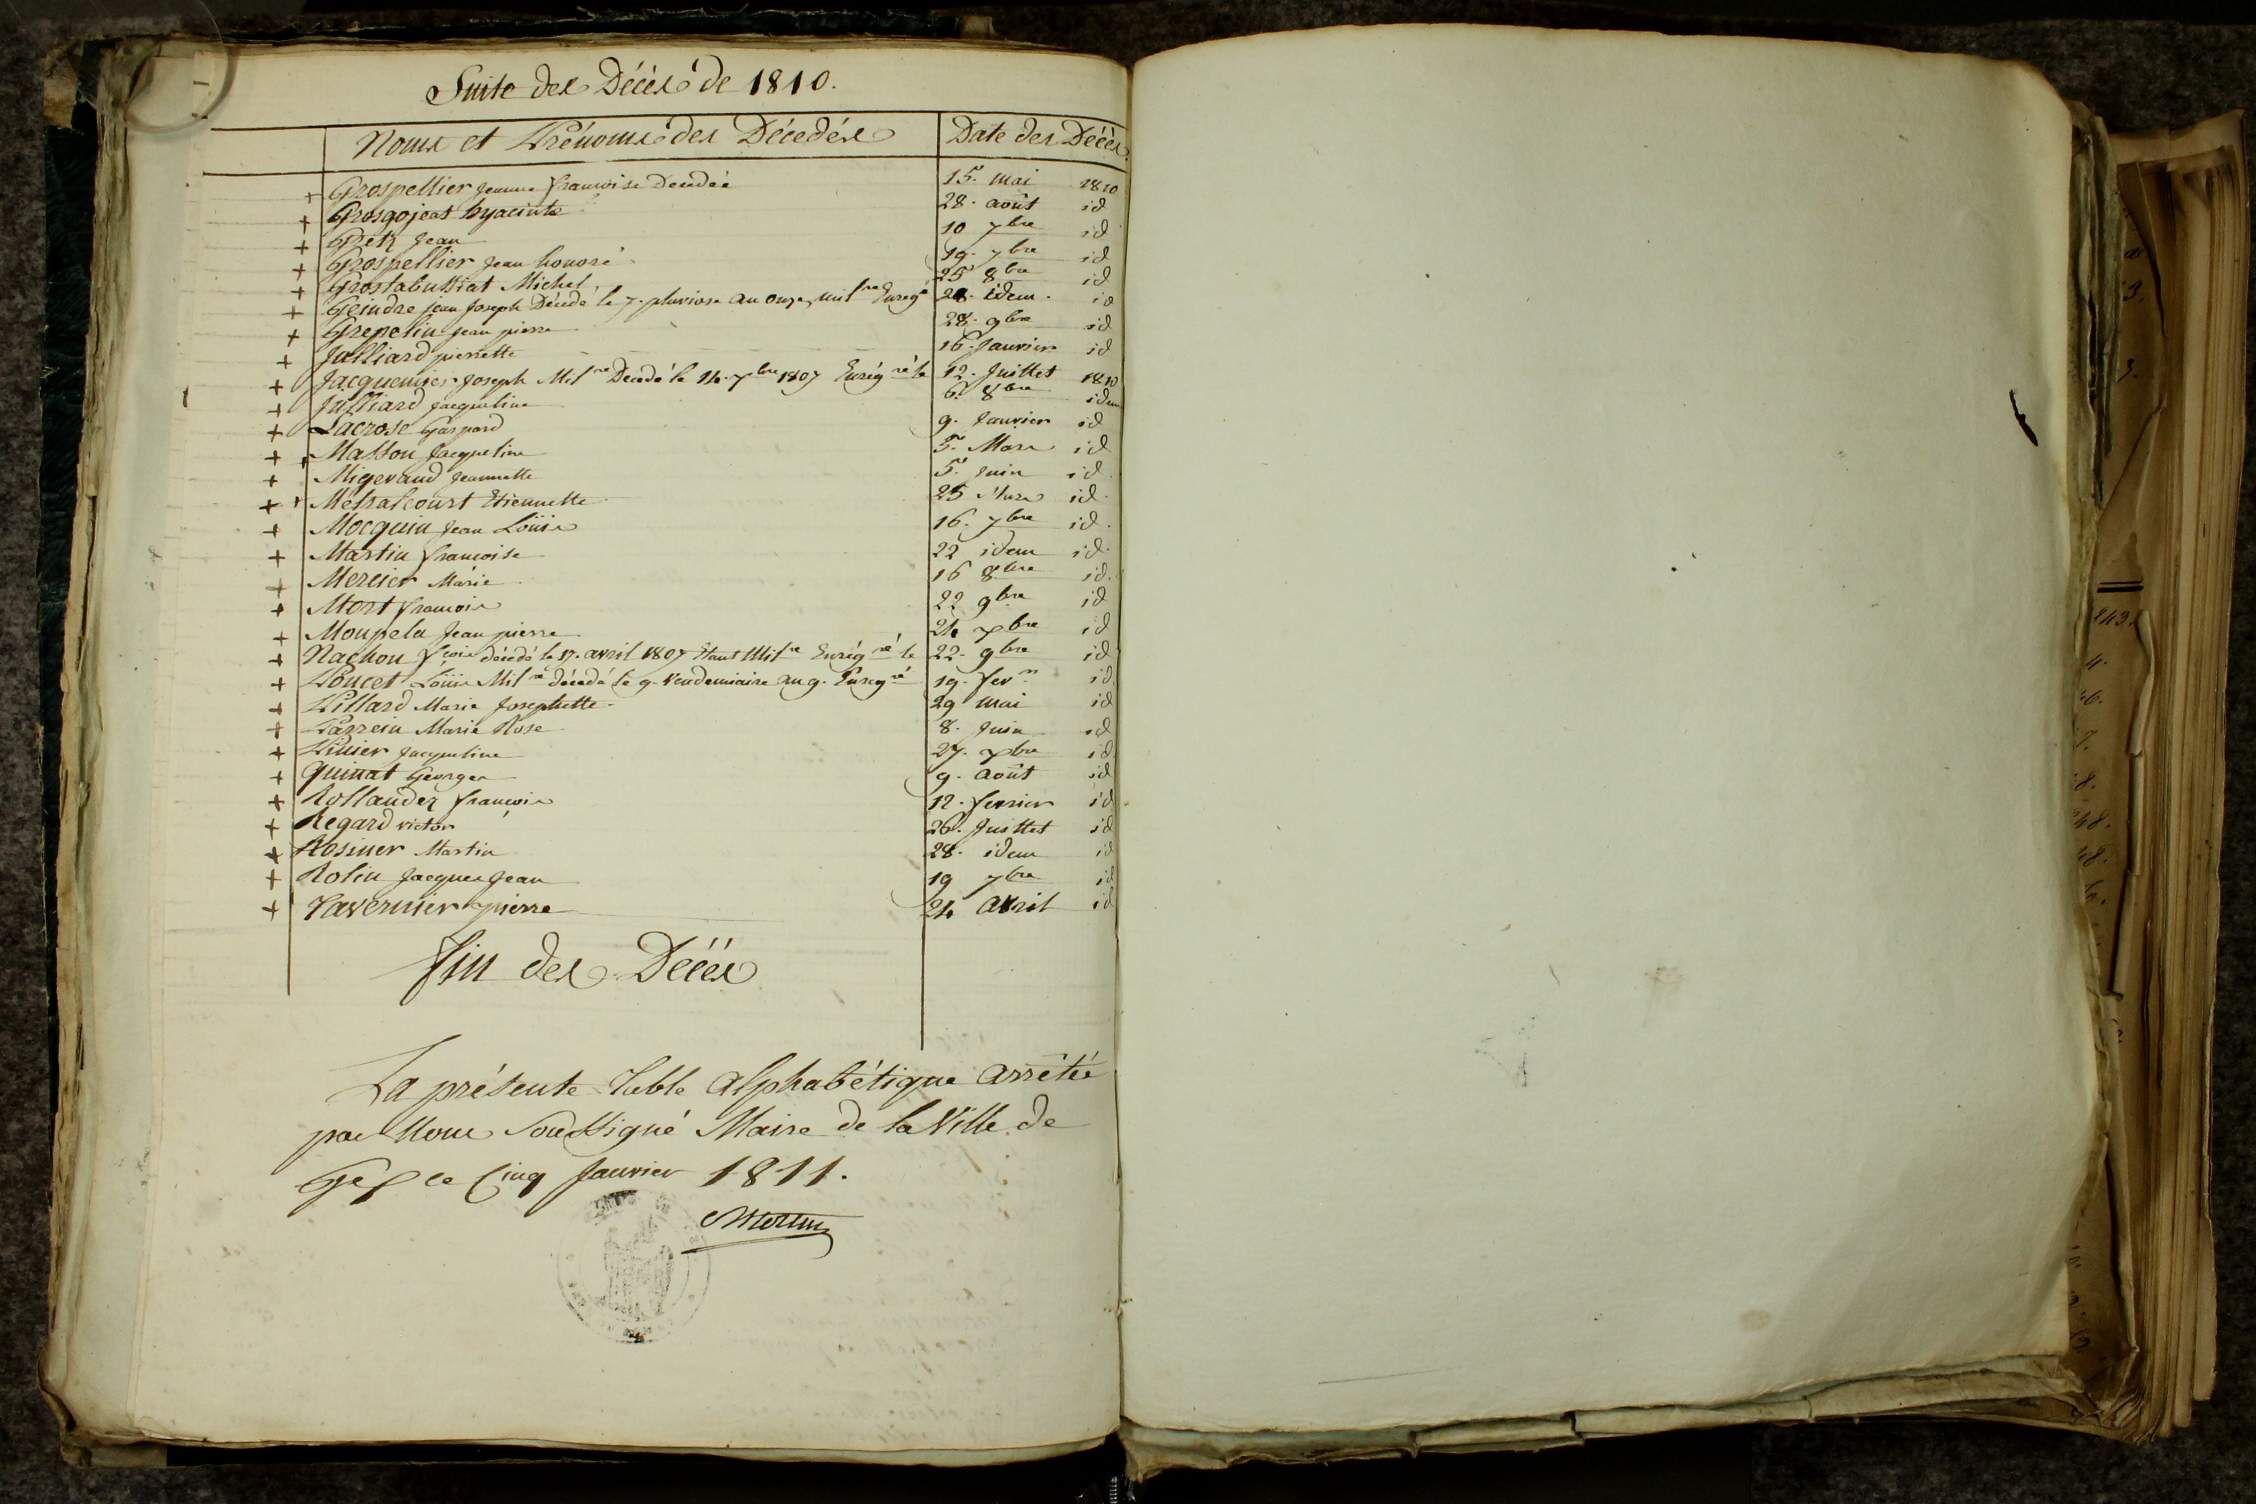 Suite des Décès de 1810.
Noms et Prénoms des Décedés Date des Décès.
+ Grospellier Jeanne françoise Decedée 15. mai 1810
+ Grosgojeat hyacinte 28. août id
+ Gretz Jean 10 7bre id
+ Grospellier Jean honoré 19. 7bre id
+ Grostabussiat Michel. 25 8bre id
+ Geindre jean Joseph Décedé le 7. pluviose an onze, milre Enregé 28. idem. id
+ Grepelin Jean pierre 28. 9bre id
+ Julliard pierrette 16. Janvier id
+ Jacquemier Joseph Milre Decedé le 14. 7bre 1807 Enrégré le 12. Juillet 1810
+ Julliard Jacqueline 6. 8bre idem
+ Lacrose Gaspard 9. Janvier id
+ Masson Jacqueline 5. Mars id
+ Migeraud Jeannette 5. Juin id
+ Metralcourt Etiennette 25 id
+ Mocquin Jean Loüis 16. 7bre id.
+ Martin françoise 22 idem id.
+ Mercier Marie 16 8bre id.
+ Mort françois 22 9bre id
+ Moupela Jean pierre 24 7bre id
+ Nachon fcois décédé le 17. avril 1807 Etant Milre Enrégré le 22. 9bre id
+ Poncet Loüis Milre décédé le 9. Vendemiaire an 9. Enregré 19. fevr id
+ Pillard Marie Josephette. 29 mai id
+ Parrein Marie Rose 8. Juin id
+ Pinier Jacqueline 27. 7bre id
+ Quinat Georges 9. Août id
+ Rollandez françois 12. fevrier id
+ Regard victor 26. Juillet id
+ Rosiner Martin 28. idem id
+ Rolin Jacques Jean 19 7bre id
+ Tavernier pierre 24 Avril id
fin des Décès
La présente Table Alphabétique Arrêtée
par Nous Soussigné Maire de la Ville de
Gex ce Cinq Janvier 1811.